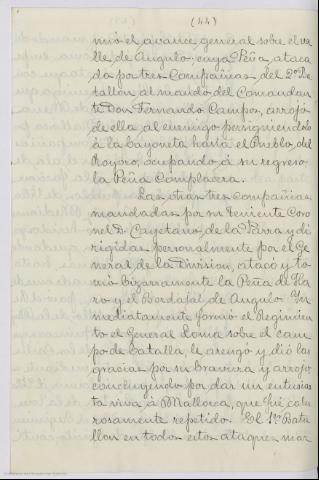 (44)
mió el avance general sobre el va
lle de Angulo; cuya Peña, ataca
da por tres Compañias del 2º Ba
tallon al mando del Comandan
te Don Fernando Campos, arrojó
de ella al enemigo persiguiendolo
á la bayoneta hasta el Pueblo del
ocupando á su regreso
la Peña Complacera.
Las otras tres compañias
mandadas por su Teniente Coro
nel D. Cayetano de la Parra y di
rigidas personalmente por el Ge
neral de la Division, atacó y to
mó bizarramente la Peña de Ha
ro y el Bordafal de Angulo. In
mediatamente formó el Regimien
to el General Loma sobre el cam
po de batalla, le arengó y dió las
gracias por su bravura y arrojo
concluyendo por dar un entusias
ta viva á Mallorca, que fué calu
rosamente repetido. El 1er Bata
llon en todos estos ataques mar